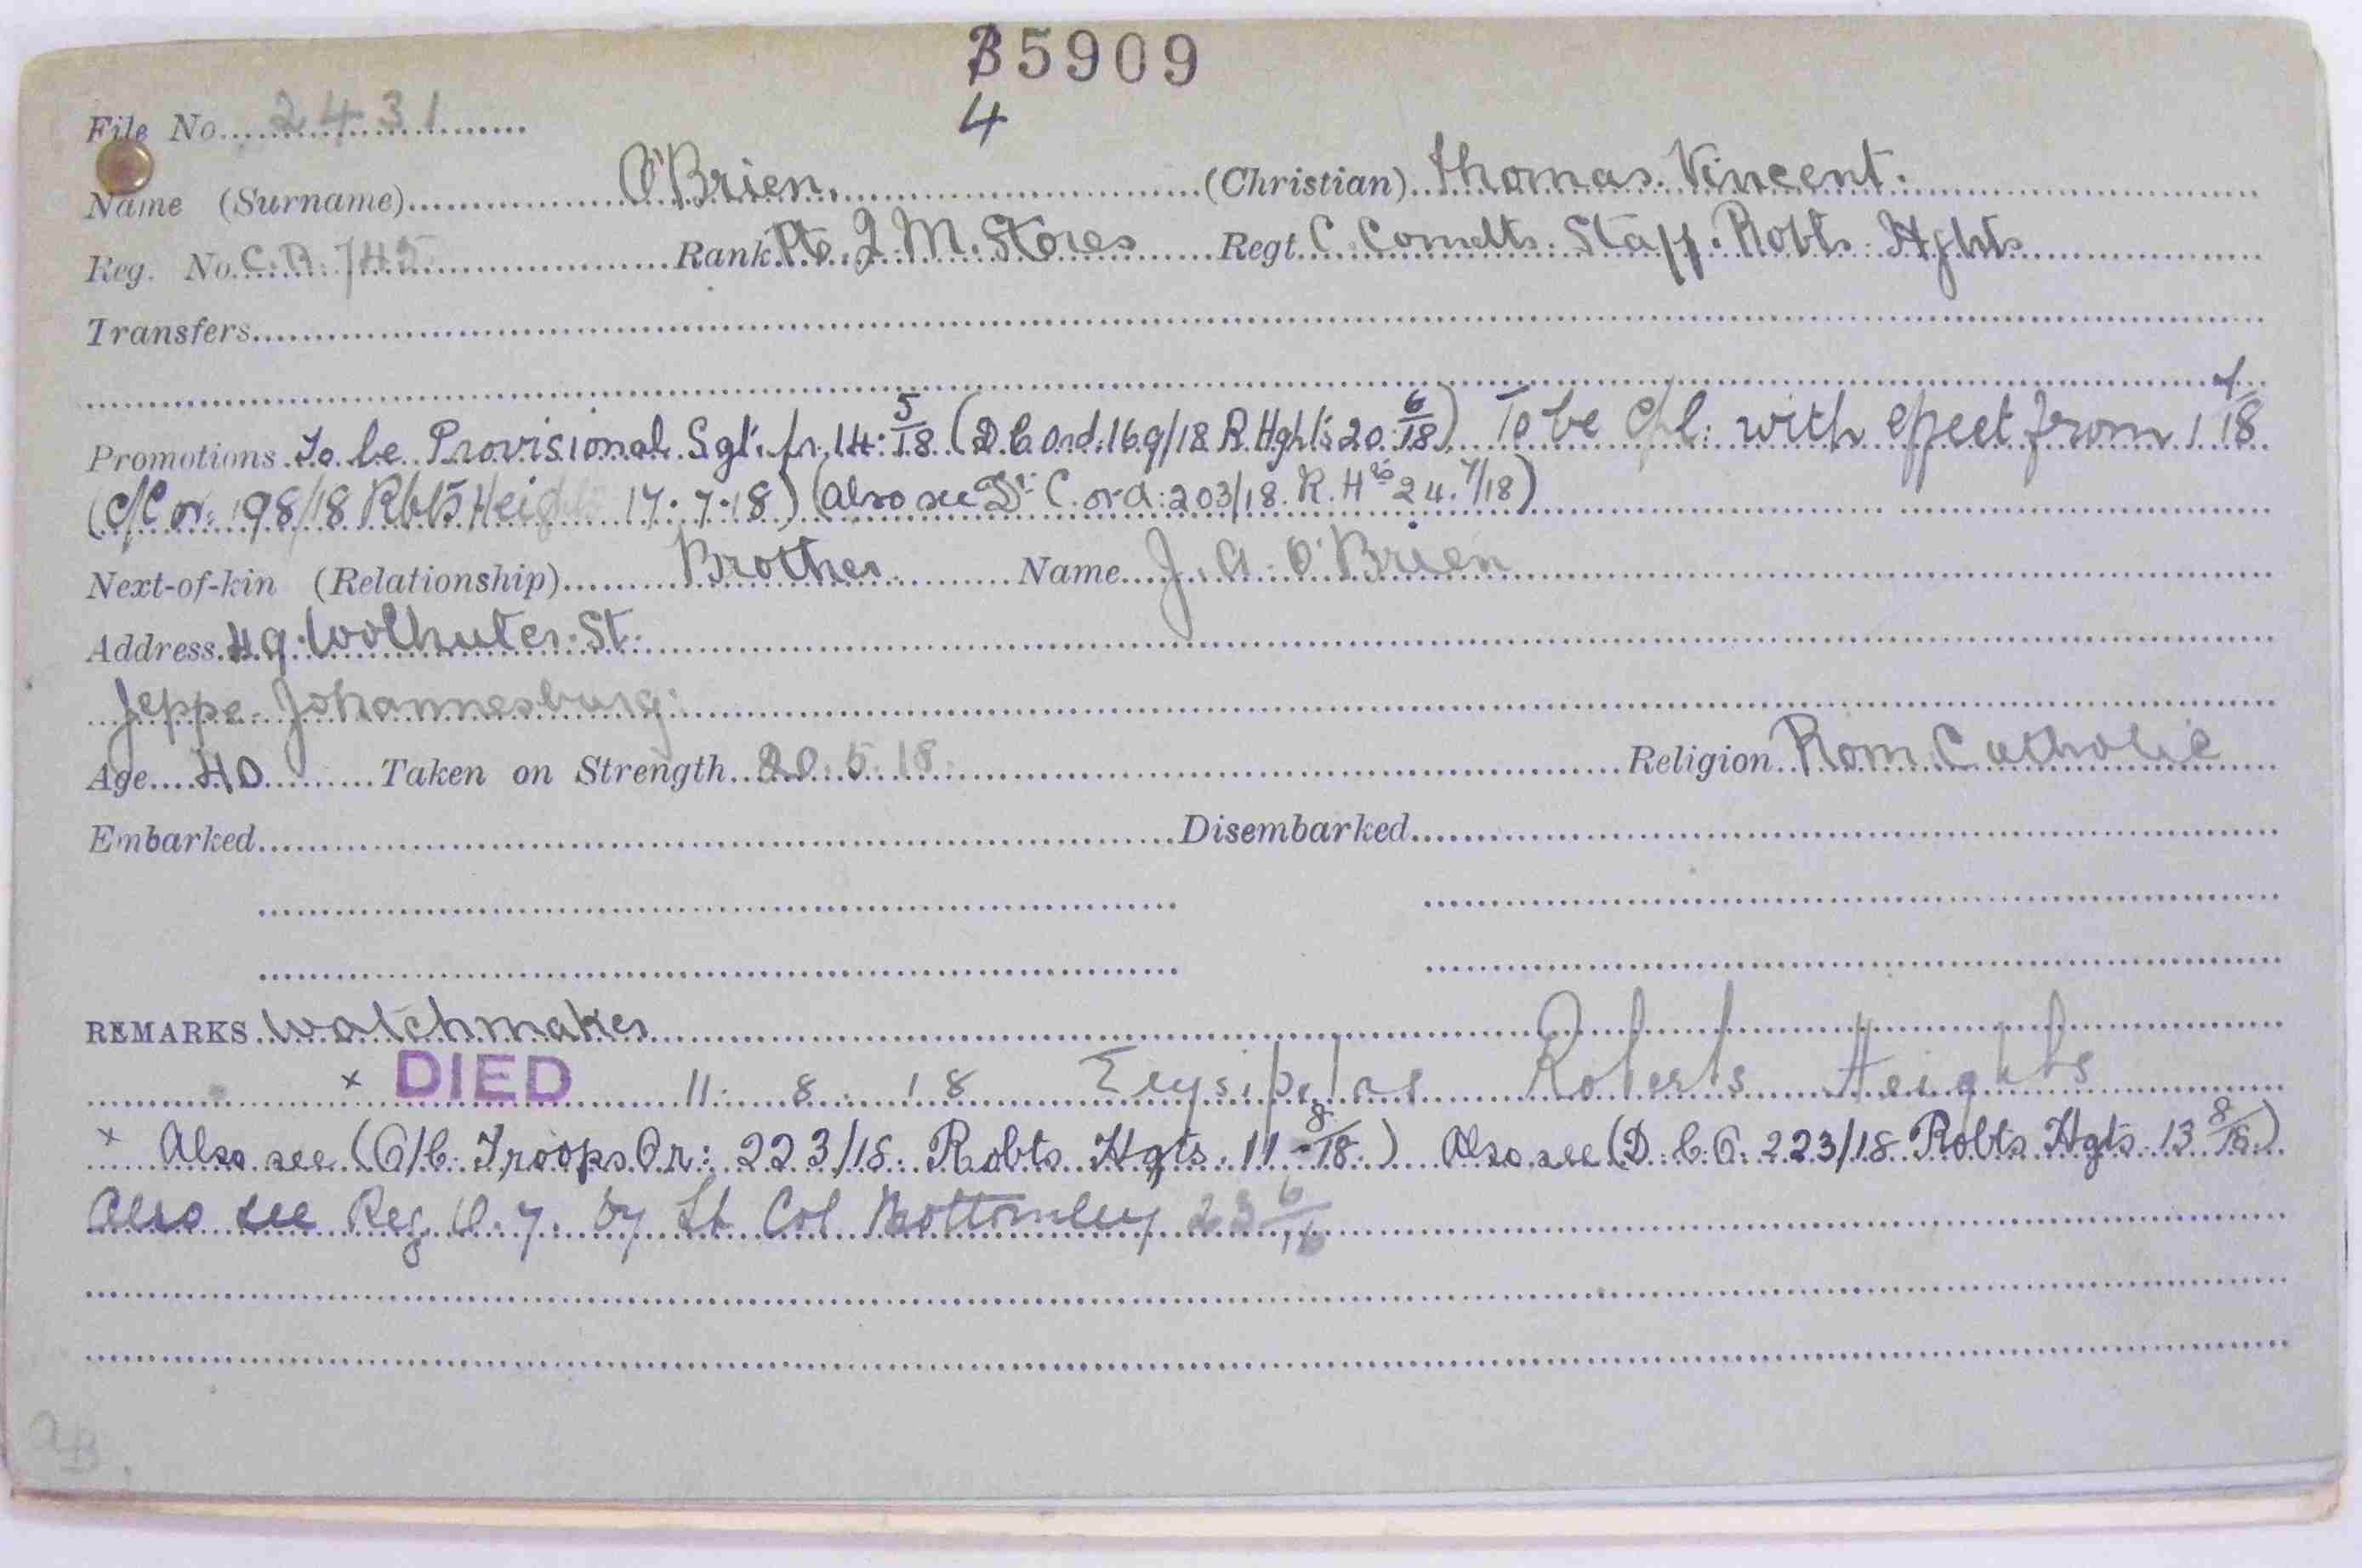 B5909
4
File No. 2431
Name (Surname) O'Brien. (Christian) Thomas. Vincent.
Reg. No. C.R. 745 Rank Pte. Q.M. Stores Regt. C. Comdts. Staff. Robts. Hghts
Transfers
Promotions To be Provisional Sgt. fr. 14.5/18 (D.C. Ord. 169/18 R. Hghts 20.6/18) To be Cpl. with effect from 1 /18
(C/C or: 198/18 Rbts Heights 17.7.18) (also see Dt. C. ord: 203/18. R. Hts 24.7/18)
Next-of-kin (Relationship) Brother Name J. A. O'Brien
Address 49. Wolhuter. St.
Jeppe. Johannesburg.
Age 40 Taken on Strength 20.5.18. Religion Rom. Catholic
Embarked Disembarked
REMARKS Watchmaker
x DIED 11. 8. 18 Erysipelas Roberts Heights
x Also see (O/C. Troops Or: 223/18. Robts. Hgts. 11-8/18.) Also see (D.C.O. 223/18 Robts. Hgts. 13 8/18.)
Also see Reg. by Lt Col Bottomley 23 6